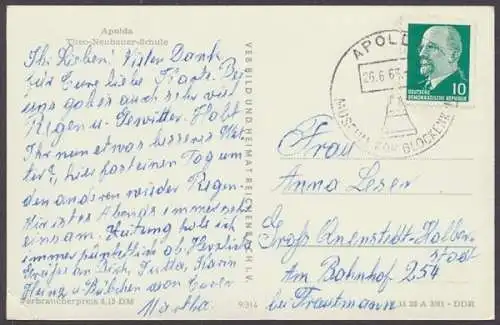 Apolda
Theo-Neubauer-Schule
Ihr Lieben! Vielen Dank
für Eure liebe Karte. Bei
uns gab es auch sehr viel
Regen u. Gewitter. Habt
Ihr nun etwas besseres Wet-
ter?, hier fast einen Tag um
den anderen wieder Regen.
Mir ist es Abends immer sehr
einsam. Zeitung hole ich
immer pünktlich ab. Herzliche
Grüße an Dich, Jutta, Karin
Heinz u. Bübchen von Eurer
Martha.
Verbraucherpreis 0,15 DM
VEB BILD UND HEIMAT REICHENBACH I. V.
9/314
APOLDA
26.6.65
MUSEUM FÜR GLOCKENK
DEUTSCHE
DEMOKRATISCHE REPUBLIK
10
Frau
Anna Leser
Groß Quenstedt-Halber-
stadt
Am Bahnhof 254
bei Trautmann
DDR